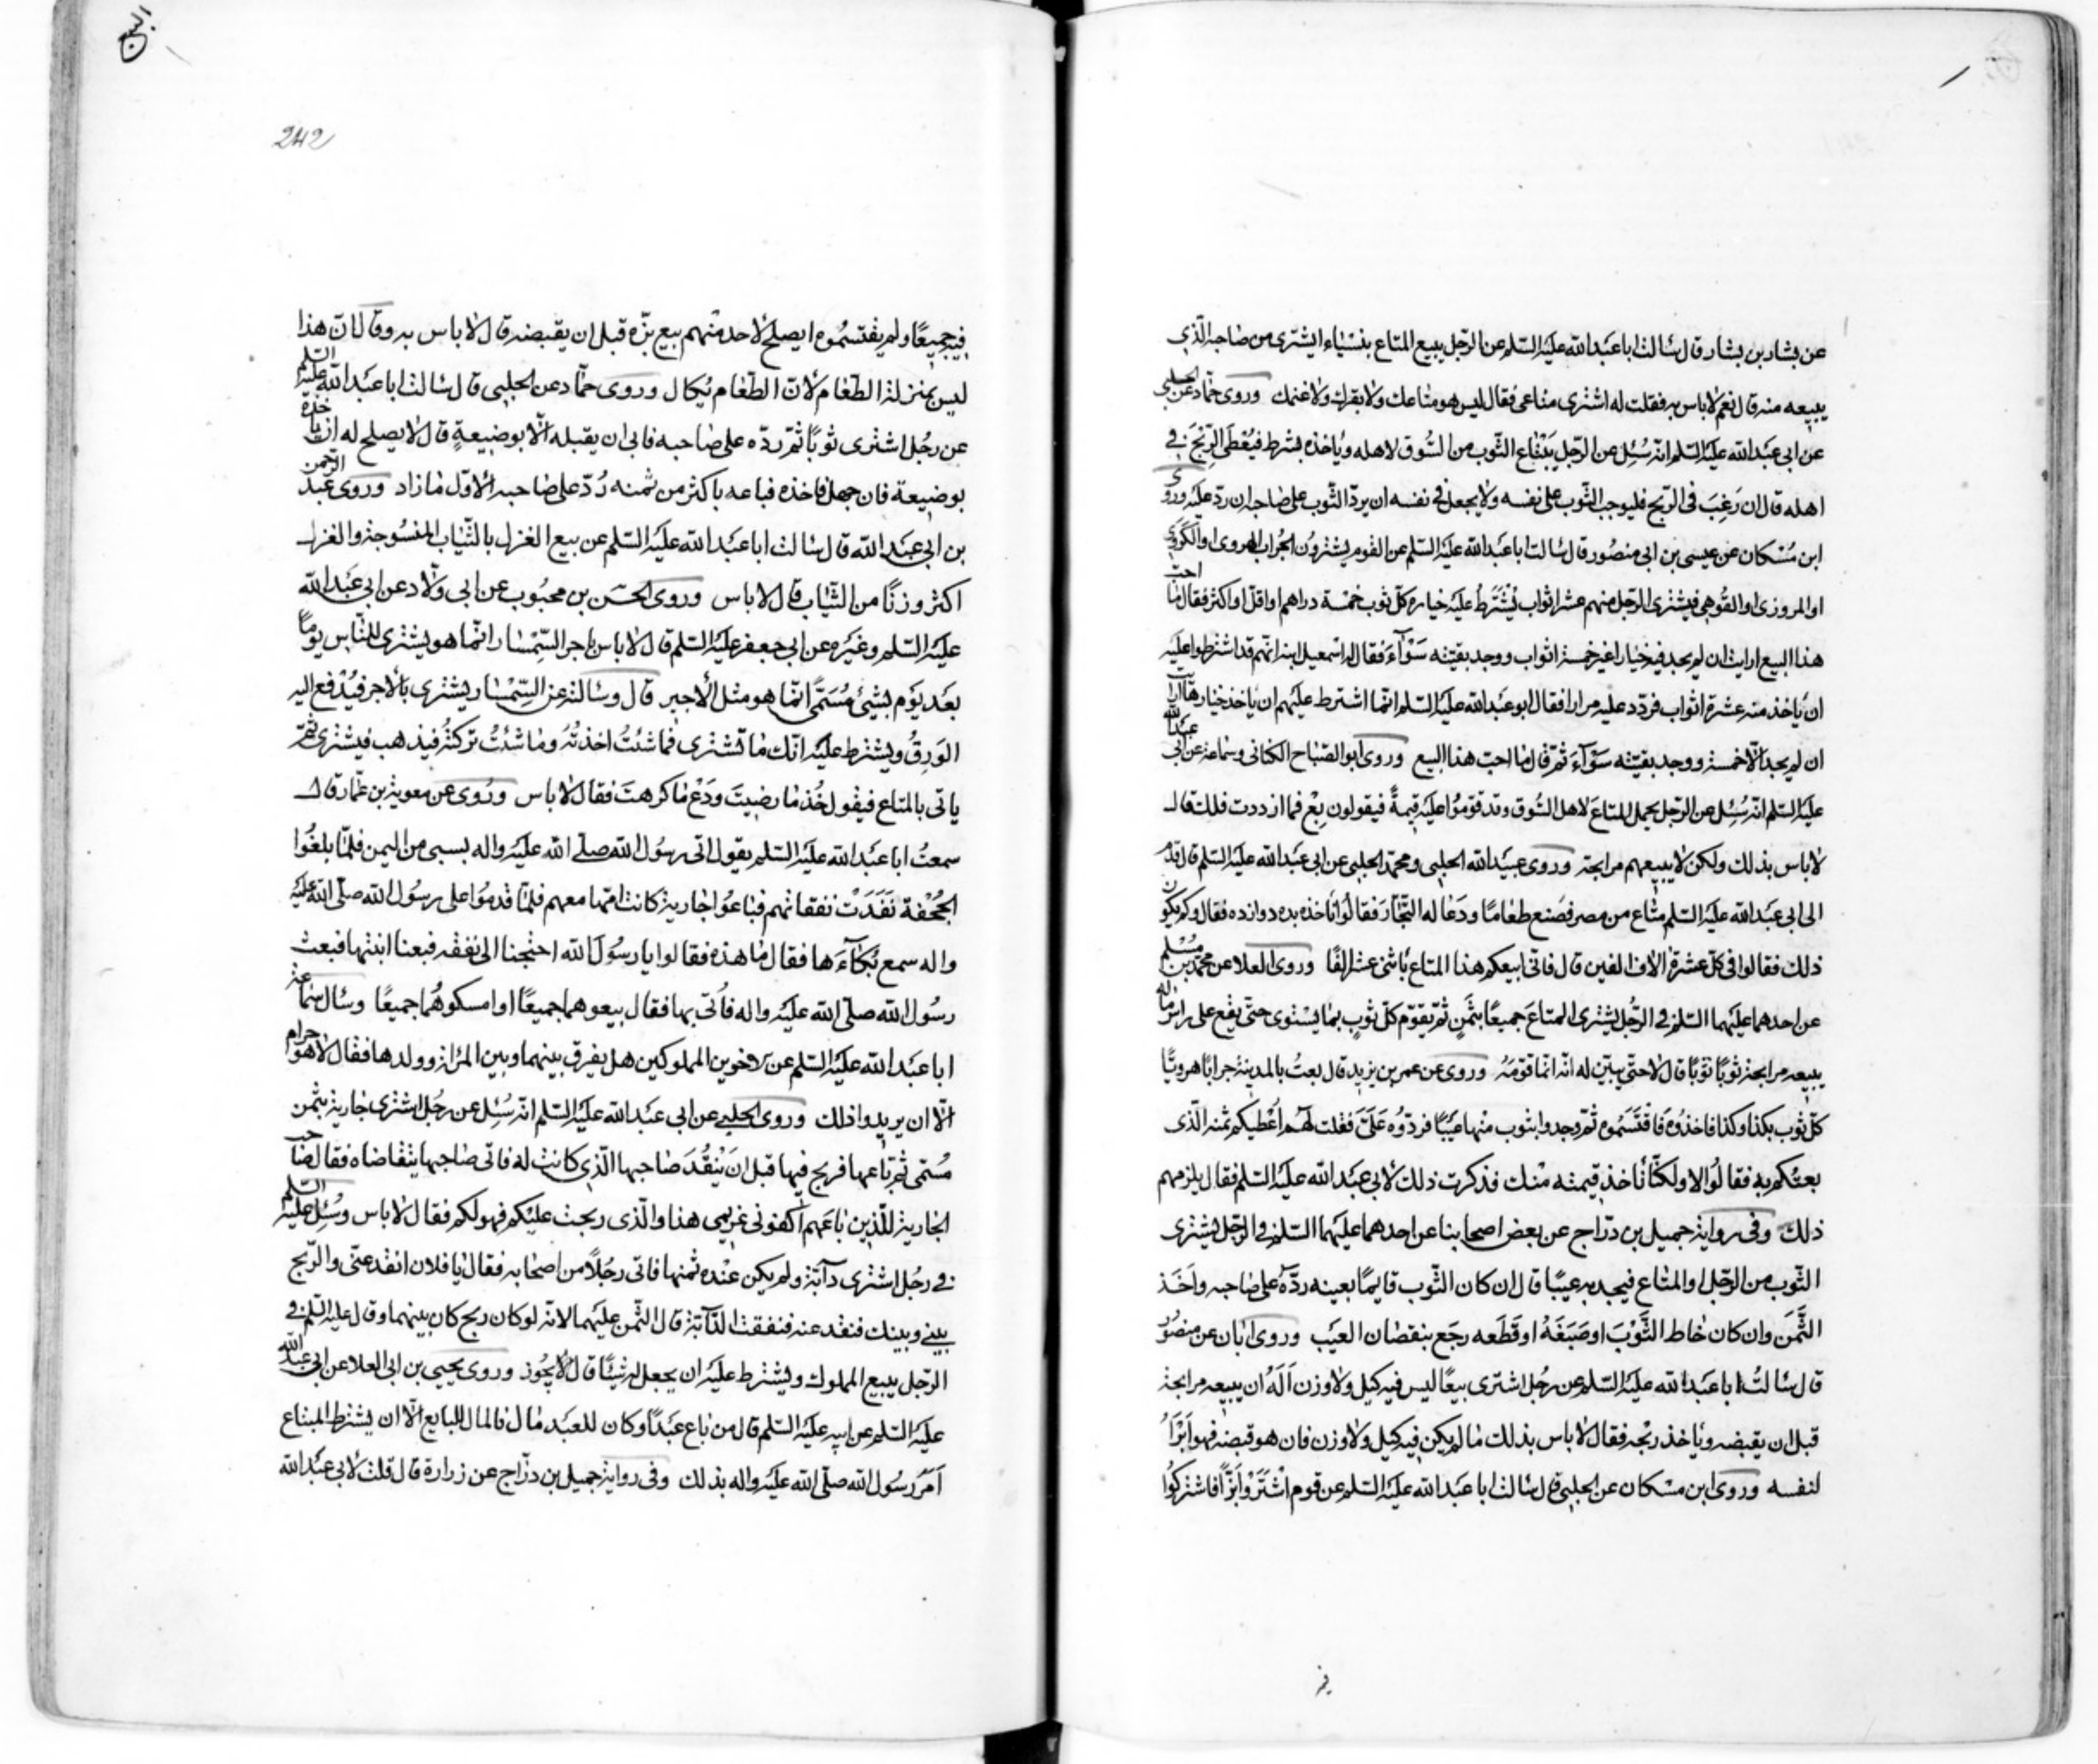 عن بشار بن بشار قال سالت ابا عبد الله عليه السلم عن الرجل يبيع المتاع بنسياء ايشترى من صاحبه الذى
يبيعه منه قال نعم لا باس به فقلت له اشترى متاعى فقال ليس هو متاعك ولا بقرك ولا غنمك وروى حماد عن الحلبى
عن ابى عبد الله عليه السلم انه سئل عن الرجل يبتاع الثوب من السوق لاهله وياخذه بشرط فيعطى الربح فى
اهله قال ان رغب فى الربح فليوجب الثوب على نفسه ولا يجعل فى نفسه ان يرد الثوب على صاحبه ان رد عليه وروى
ابن مسكان عن عيسى بن ابى منصور قال سالت ابا عبد الله عليه السلم عن القوم يشترون الجراب الهروى او الكروى
او المروزى او القوهى فيشترى الرجل منهم عشر اثواب يشترط عليه خياره كل ثوب خمسة دراهم او اقل او اكثر فقال ما احب
هذا البيع ارايت ان لم يجد فيه خيارا غير خمسة اثواب ووجد بقيته سوآء فقال له اسمعيل ابنه انهم قد اشترطوا عليه
ان ياخذ منه عشرة اثواب فردد عليه مرارا فقال ابو عبد الله عليه السلم انما اشترط عليهم ان ياخذ خيارها ارايت
ان لم يجد الا خمسة ووجد بقيته سوآء ثم قال ما احب هذا البيع وروى ابو الصباح الكنانى وسماعة عن ابى عبد الله
عليه السلم انه سئل عن الرجل يحمل المتاع لاهل السوق وقد قوموا عليه قيمة فيقولون بع فما ازددت فلك قال
لا باس بذلك ولكن لا يبيعهم مرابحة وروى عبيد الله الحلبى ومحمد الحلبى عن ابى عبد الله عليه السلم قال قدم
الى ابى عبد الله عليه السلم متاع من مصر فصنع طعاما ودعا له التجار فقالوا ناخذه بده دوازده فقال وكم يكون
ذلك فقالوا فى كل عشرة الاف الفين قال فانى ابيعكم هذا المتاع باثنى عشر الفا وروى العلا عن محمد بن مسلم
عن احدهما عليهما السلم فى الرجل يشترى المتاع جميعا بثمن ثم يقوم كل ثوب بما يستوى حتى يقع على راس ماله
يبيعه مرابحة ثوبا ثوبا قال لا حتى يبين له انه انما قومه وروى عن عمر بن يزيد قال بعت بالمدينة جرابا هرويا
كل ثوب بكذا وكذا فاخذوه فاقتسموه ثم وجدوا بثوب منها عيبا فردوه على فقلت لهم اعطيكم ثمنه الذى
بعتكم به فقالوا لا ولكنا ناخذ قيمته منك فذكرت ذلك لابى عبد الله عليه السلم فقال يلزمهم
ذلك وفى رواية جميل بن دراج عن بعض اصحابنا عن احدهما عليهما السلم فى الرجل يشترى
الثوب من الرجل او المتاع فيجد به عيبا قال ان كان الثوب قايما بعينه رده على صاحبه واخذ
الثمن وان كان خاط الثوب او صبغه او قطعه رجع بنقصان العيب وروى ابان عن منصور
قال سالت ابا عبد الله عليه السلم عن رجل اشترى بيعا ليس فيه كيل ولا وزن اله ان يبيعه مرابحة
قبل ان يقبضه وياخذ ربحه فقال لا باس بذلك ما لم يكن فيه كيل ولا وزن فان هو قبضه فهو ابرأ
لنفسه وروى ابن مسكان عن الحلبى قال سالت ابا عبد الله عليه السلم عن قوم اشتروا بزا فاشتركوا
فيه
البيع
242
فيه جميعا ولم يقتسموه ايصلح لاحد منهم بيع بزه قبل ان يقبضه قال لا باس به وقال ان هذا
ليس بمنزلة الطعام لان الطعام يكال وروى حماد عن الحلبى قال سالت ابا عبد الله عليه السلم
عن رجل اشترى ثوبا ثم رده على صاحبه فابى ان يقبله الا بوضيعة قال لا يصلح له ان ياخذه
بوضيعة فان جهل فاخذه فباعه باكثر من ثمنه رد على صاحبه الاول ما زاد وروى عبد الرحمن
بن ابى عبد الله قال سالت ابا عبد الله عليه السلم عن بيع الغزل بالثياب المنسوجة والغزل
اكثر وزنا من الثياب قال لا باس وروى الحسن بن محبوب عن ابى ولاد عن ابى عبد الله
عليه السلم وغيره عن ابى جعفر عليه السلم قال لا باس باجر السمسار انما هو يشترى للناس يوما
بعد يوم بشىء مسمى انما هو مثل الاجير قال وسالته عن السمسار يشترى بالاجر فيدفع اليه
الورق ويشترط عليه انك ما تشترى فما شئت اخذته وما شئت تركته فيذهب فيشترى ثم
ياتى بالمتاع فيقول خذ ما رضيت ودع ما كرهت فقال لا باس وروى عن معوية بن عمار قال
سمعت ابا عبد الله عليه السلم يقول اتى رسول الله صلى الله عليه واله بسبى من اليمن فلما بلغوا
الجحفة نفدت نفقاتهم فباعوا جارية كانت امها معهم فلما قدموا على رسول الله صلى الله عليه
واله سمع بكاءها فقال ما هذه فقالوا يا رسول الله احتجنا الى نفقة فبعنا ابنتها فبعث
رسول الله صلى الله عليه واله فاتى بها فقال بيعوهما جميعا او امسكوهما جميعا وسال سماعة
ابا عبد الله عليه السلم عن الاخوين المملوكين هل يفرق بينهما وبين المراة وولدها فقال لا هو حرام
الا ان يريدوا ذلك وروى الحلبى عن ابى عبد الله عليه السلم انه سئل عن رجل اشترى جارية بثمن
مسمى ثم باعها فربح فيها قبل ان ينقد صاحبها الذى كانت له فاتى صاحبها يتقاضاه فقال صاحب
الجارية للذين باعهم اكفونى غريمى هذا والذى ربحت عليكم فهو لكم فقال لا باس وسئل عليه السلم
فى رجل اشترى دآبة ولم يكن عنده ثمنها فاتى رجلا من اصحابه فقال يا فلان انقد عنى والربح
بينى وبينك فنقد عنه فنفقت الدآبة قال الثمن عليهما لانه لو كان ربح كان بينهما وقال عليه السلم فى
الرجل يبيع المملوك ويشترط عليه ان يجعل له شيئا قال لا يجوز وروى يحيى بن ابى العلا عن ابى عبد الله
عليه السلم عن ابيه عليه السلم قال من باع عبدا وكان للعبد مال فالمال للبايع الا ان يشترط المبتاع
امر رسول الله صلى الله عليه واله بذلك وفى رواية جميل بن دراج عن زرارة قال قلت لابى عبد الله